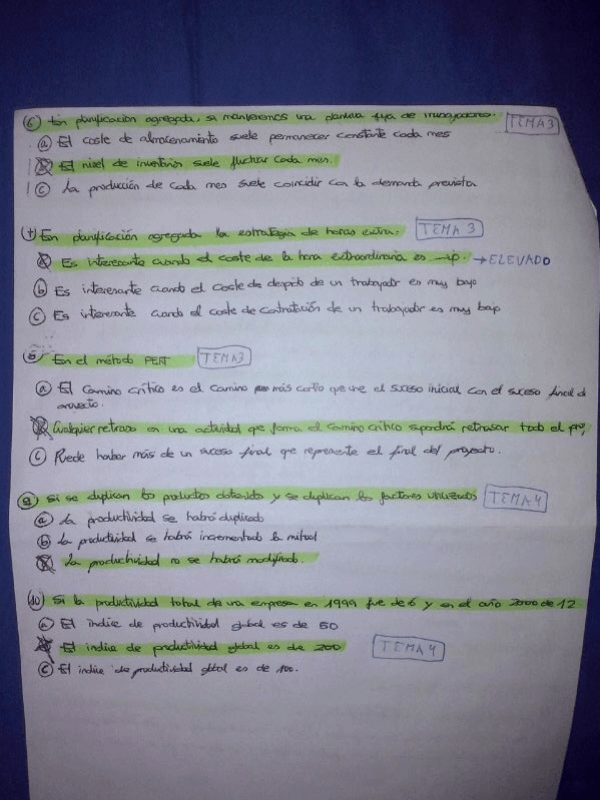 6) En planificación agregada, si mantenemos una plantilla fija de trabajadores. TEMA 3
a) El coste de almacenamiento suele permanecer constante cada mes
b) El nivel de inventarios suele fluctuar cada mes.
c) La producción de cada mes suele coincidir con la demanda prevista
7) En planificación agregada la estrategia de horas extra: TEMA 3
a) Es interesante cuando el coste de la hora extraordinaria es → ELEVADO
b) Es interesante cuando el coste de despido de un trabajador es muy bajo
c) Es interesante cuando el coste de contratación de un trabajador es muy bajo
En el método PERT TEMA3
a) El camino crítico es el camino más corto que une el suceso inicial con el suceso final d
proyecto.
b) Cualquier retraso en una actividad que forma el camino crítico supondrá retrasar todo el
c) Puede haber más de un suceso final que represente el final del proyecto.
9) Si se duplican los productos obtenidos y se duplican los factores utilizados TEMA 4
a) La productividad se habrá duplicado
b) La productividad se habrá incrementado la mitad
c) La productividad no se habrá modificado.
10) Si la productividad total de una empresa en 1999 fue de 6 y en el año 2000 de 12
a) El índice de productividad global es de 50
b) El índice de productividad global es de 200 TEMA 4
c) El índice de productividad global es de 100.